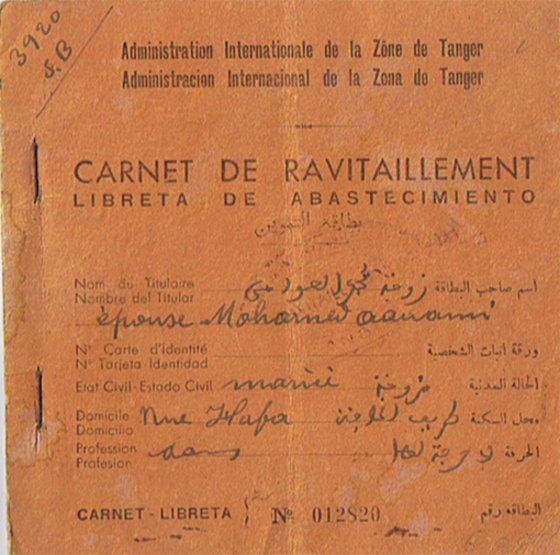 3920
& B
Administration Internationale de la Zône de Tanger
Administracion Internacional de la Zona de Tanger
CARNET DE RAVITAILLEMENT
LIBRETA DE ABASTECIMIENTO
بطاقة التموين
Nom du Titulaire زوجة محمد اسم صاحب البطاقة
Nombre del Titular
épouse Mohamed
Nº Carte d'Identité ورقة اثبات الشخصية
Nº Tarjeta Identidad
Etat Civil-Estado Civil mariée مزوجة الحالة المدنية
Domicile Rue Hafa طريق محل السكنة
Domicilio
Profession sans لا حرفة لها الحرفة
Profesion
CARNET - LIBRETA } Nº 012820 البطاقة رقم